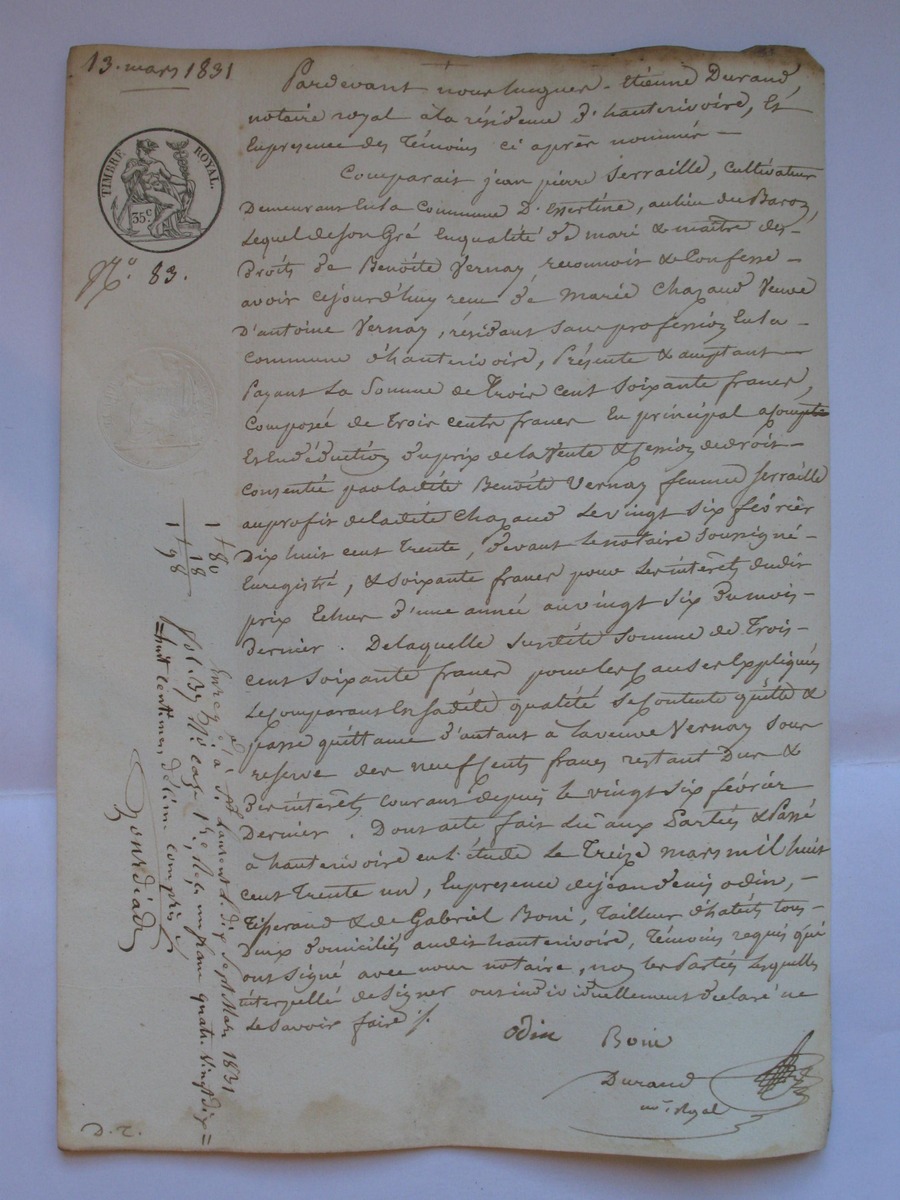 13. mars 1831
Pardevant nous Etienne Durand,
notaire royal à la résidence d'hauterivoire, Et
En presence des Témoins ci après nommés —
TIMBRE ROYAL.
35c
No. 83.
Comparait jean pierre Serraille, Cultivateur
Demeurant En la Commune D'Essertine, au lieu du
Lequel de Son Gré En qualité de mari & maître des
Droits de Benoîte Vernay, reconnoit & Confesse -
avoir cejourd'huy reçu de Marie Chazaud Veuve
D'antoine Vernay, résidant Sans profession En la -
Commune d'hauterivoire, Présente & acceptant -
Payant La Somme de Trois cent Soixante francs,
Composée de Trois cents francs En principal a Compte
Et En déduction du prix de la Vente & Cession de droits -
Consentie par ladite Benoîte Vernay femme Serraille
au profit de ladite Chazaud Le vingt Six février
Dix huit cent Trente, devant le notaire Soussigné -
Enregistré, & Soixante francs pour Les intérêts dudit
prix Echus d'une année au vingt Six du mois -
Dernier. De laquelle Susdite Somme de Trois -
cent Soixante francs pour les Causes Expliquées
Le Comparant En Sadite qualité Se Contente quitte &
passe quittance d'autant à la veuve Vernay Sous
reserve des neuf Cents francs restant Dus &
Des intérêts Courant depuis le vingt Six février
Dernier. Dont acte fait Lu aux Parties & Passé
à hauterivoire en L'étude Le Treize mars mil huit
cent Trente un, En presence de jean denis odin, -
Tisserand & de Gabriel Boni, Tailleur d'habits tous -
Deux domiciliés audit hauterivoire, Témoins requis qui
ont Signé avec nous notaire, non les Parties Lesquelles
interpellé de Signer ont individuellement declaré ne
Le Savoir faire /.
odin Boni
Durand
not. Royal
1 + 80
18
1 + 98
Enregé. à St. Laurent le dix Sept Mars 1831
fol. 37 Ro. case 1re, Reçu un franc quatre Vingt dix =
=huit centimes décime compris
D. T.